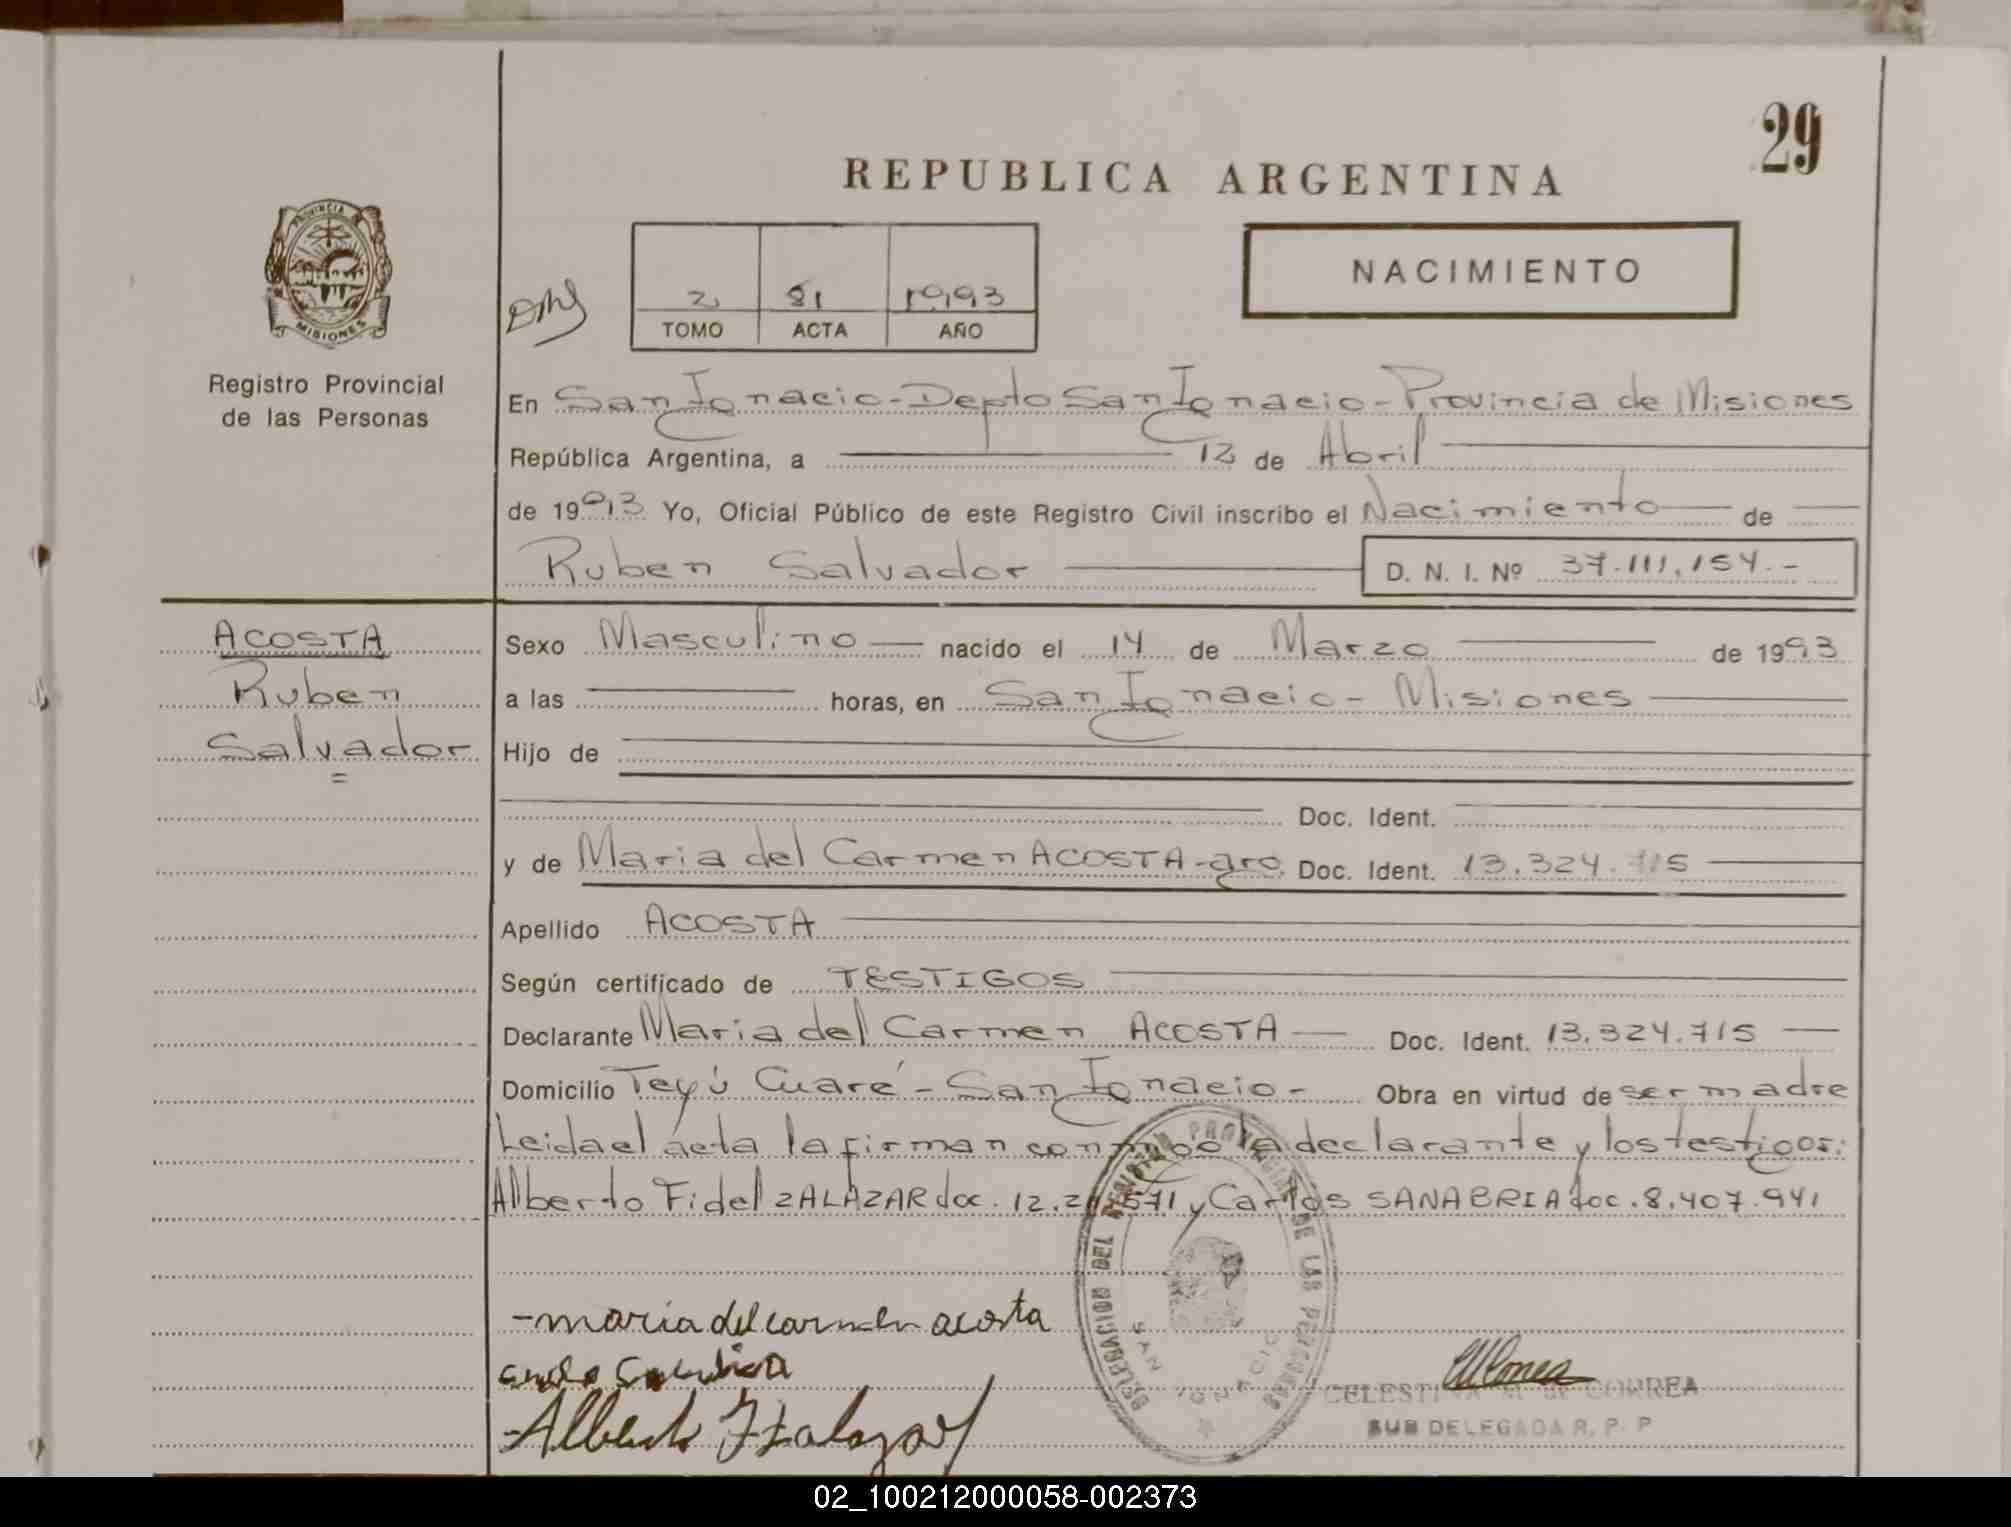 29
REPUBLICA ARGENTINA
PROVINCIA DE
MISIONES
NACIMIENTO
2 81 1993
TOMO ACTA AÑO
Registro Provincial
de las Personas
En San Ignacio - Depto San Ignacio - Provincia de Misiones
República Argentina, a 12 de Abril
de 1993 Yo, Oficial Público de este Registro Civil inscribo el Nacimiento de
Ruben Salvador D. N. I. Nº 37.111.154.-
ACOSTA
Ruben
Salvador
Sexo Masculino nacido el 14 de Marzo de 1993
a las horas, en San Ignacio - Misiones
Hijo de
Doc. Ident.
y de Maria del Carmen ACOSTA - arg. Doc. Ident. 13.324.715
Apellido ACOSTA
Según certificado de TESTIGOS
Declarante Maria del Carmen ACOSTA Doc. Ident. 13.324.715
Domicilio Teyú Cuaré - San Ignacio - Obra en virtud de ser madre
Leida el acta la firman conmigo la declarante y los testigos:
Alberto Fidel ZALAZAR doc. 12. 571 y Carlos SANABRIA doc. 8.407.941
DELEGACION DEL REGISTRO PROVINCIAL DE LAS PERSONAS
SAN IGNACIO
- maria del carmen acosta
Alberto F Zalazar
CELESTINA M. de CORREA
SUB DELEGADA R. P. P
02_100212000058-002373